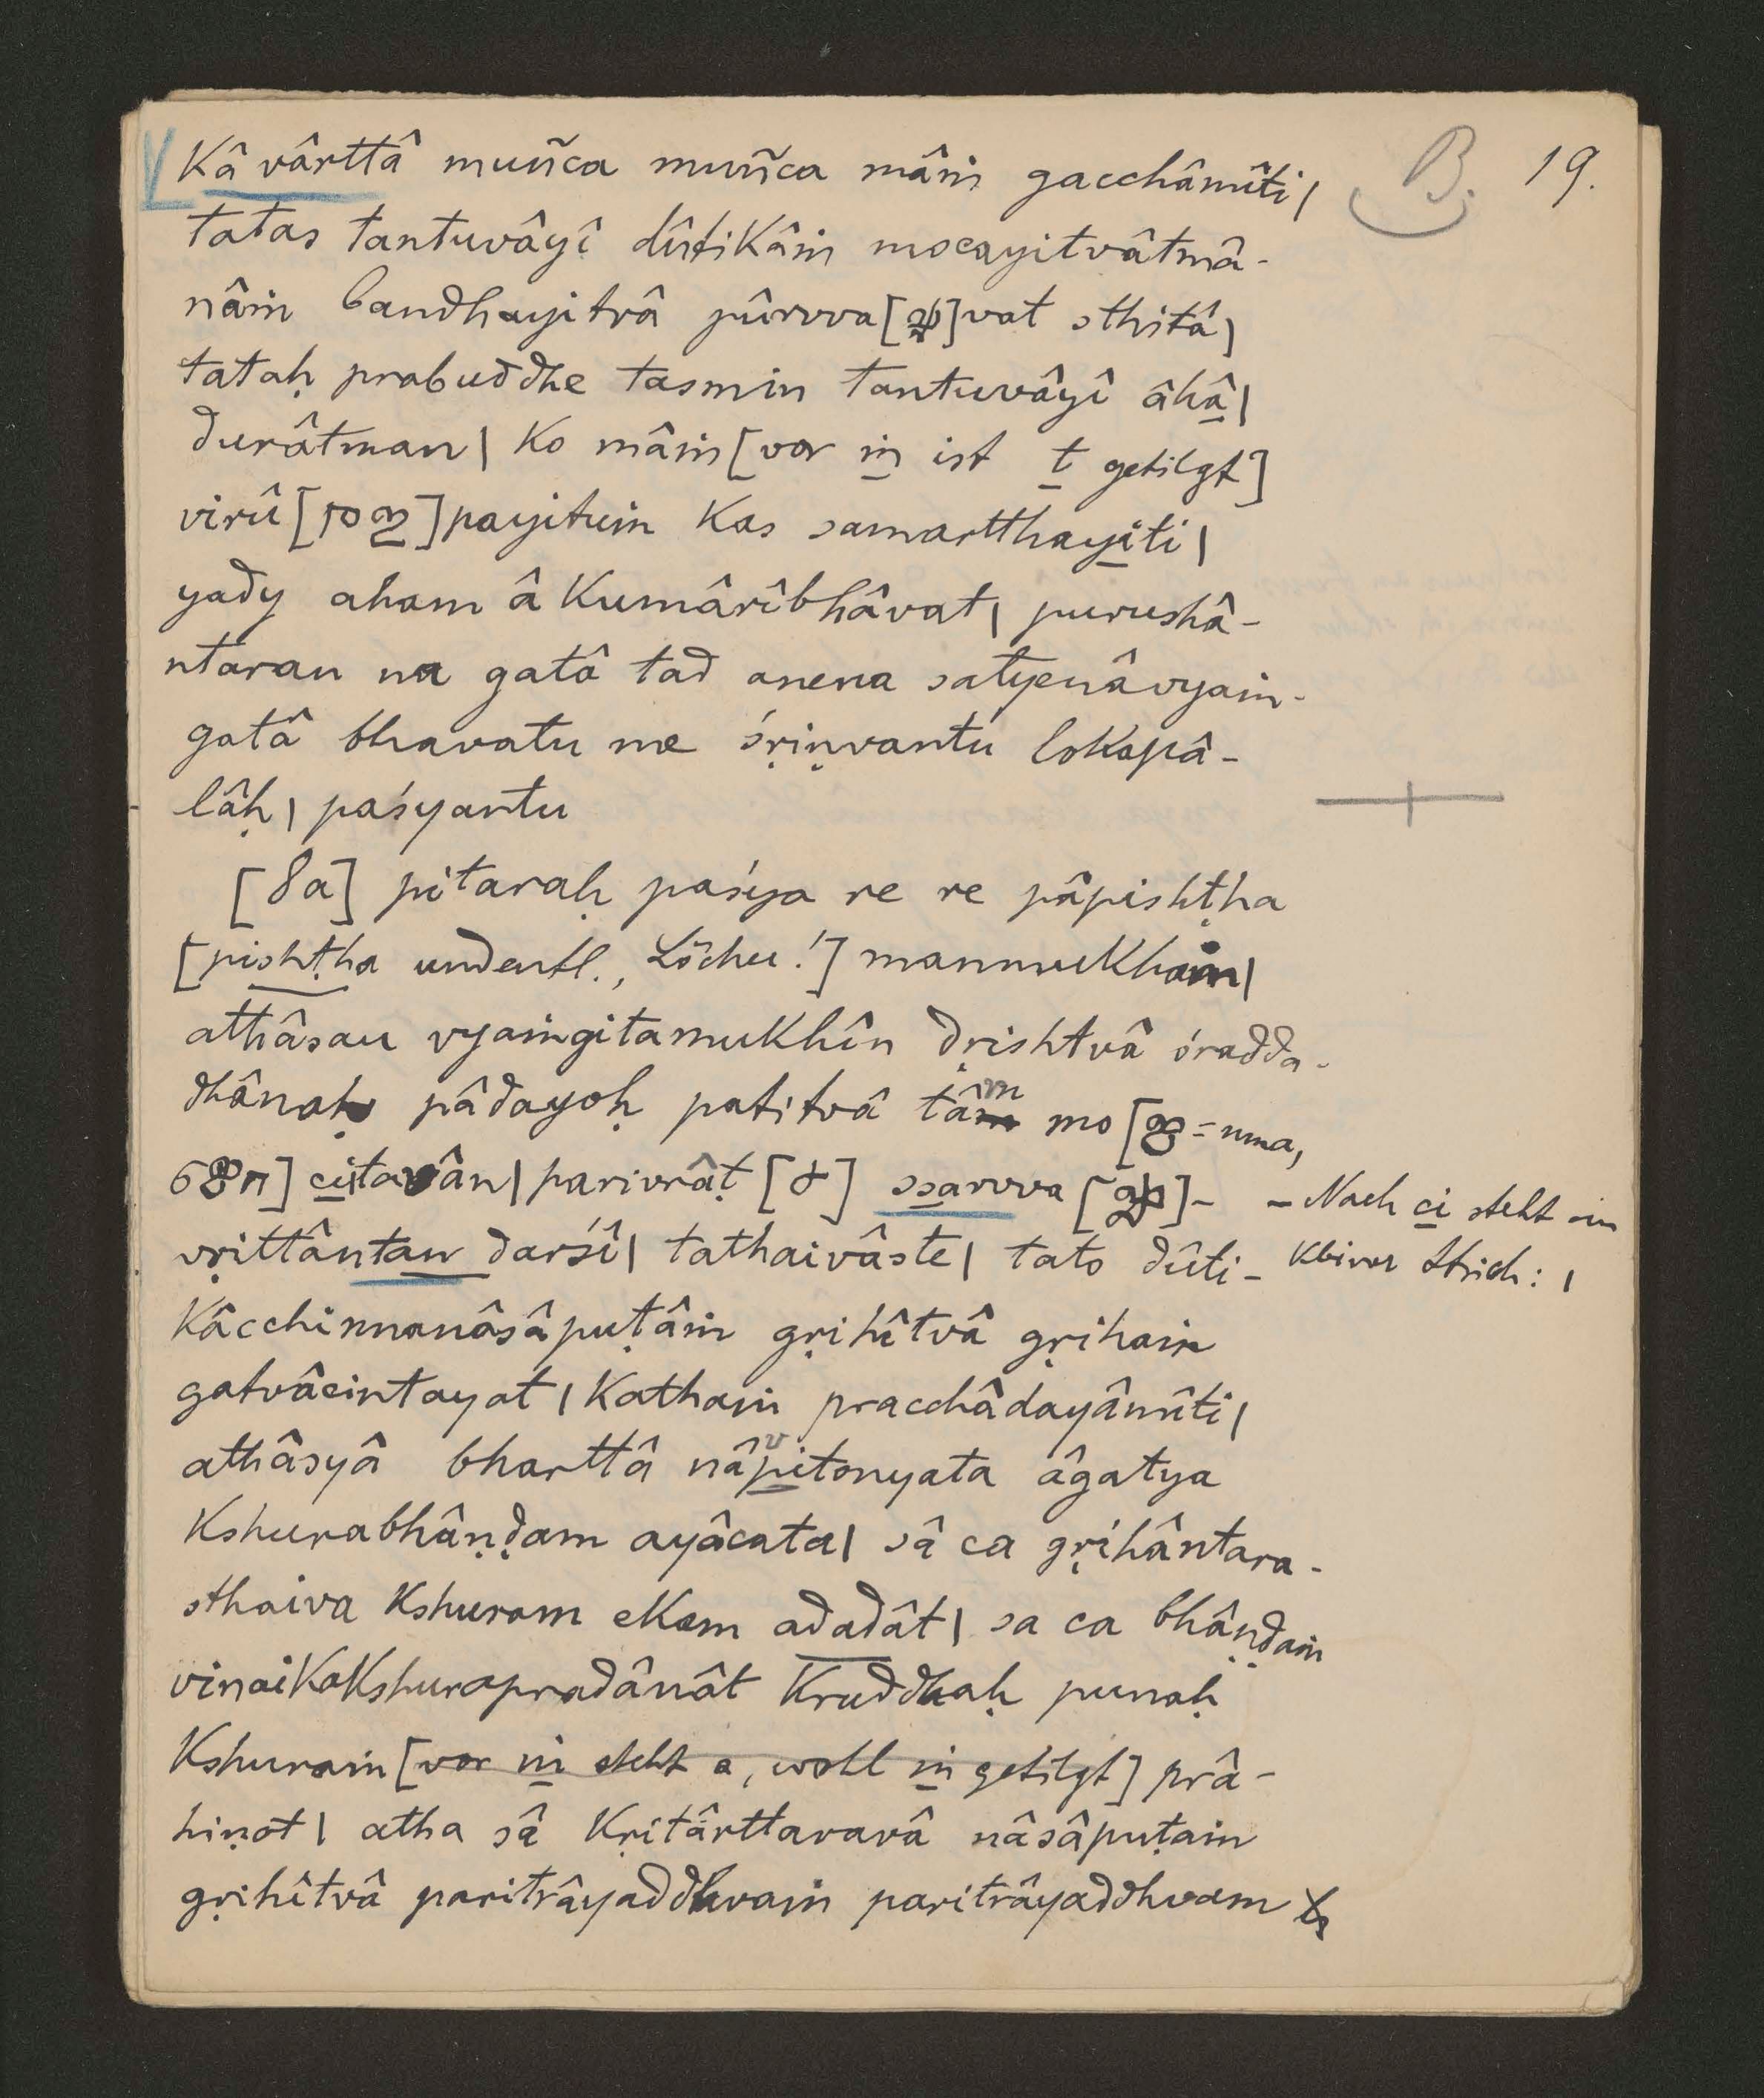 B. 19.
kâ vârttâ muñca muñca mâṁ gacchâmîti|
tatas tantuvâyî dûtikâṁ mocayitvâtmâ-
nâṁ bandhayitvâ pûrvva[]vat sthitâ|
tataḥ prabuddhe tasmin tantuvâyî âhâ|
durâtman| ko mâṁ [vor ṁ ist t getilgt]
virû[]payituṁ kas samartthayiti|
yady aham â kumârîbhâvat| purushâ-
ntaran na gatâ tad anena satyenâvyaṁ-
gatâ bhavatu me śṛiṇvantu lokapâ-
lâḥ| paśyantu
[8a] pitaraḥ paśya re re pâpishṭha
[pishṭha undeutl., Löcher!] manmukhaṁ|
athâsau vyaṁgitamukhîn dṛishtvâ śradda-
dhânaḥ pâdayoḥ patitvâ tâm mo[ണ്മ=nma,
] citavân| parivrâṭ [ ] ssarvva[]-
vṛittântan darśî| tathaivâste| tato dûti-
– Nach ci steht ein
kleiner Strich: |
kâcchinnanâsâpuṭâṁ gṛihîtvâ gṛihaṁ
gatvâcintayat| kathaṁ pracchâdayâmîti|
athâsyâ bharttâ nâpitonyata âgatya
v
kshurabhâṇḍam ayâcata| sâ ca gṛihântara-
sthaiva kshuram ekam adadât| sa ca bhâṇḍaṁ
vinaikakshurapradânât kruddhaḥ punaḥ
kshuraṁ [vor ṁ steht a, wohl ṁ getilgt] prâ-
hiṇot| atha sâ kṛitârttaravâ nâsâpuṭaṁ
gṛihîtvâ paritrâyaddhvaṁ paritrâyaddhvam